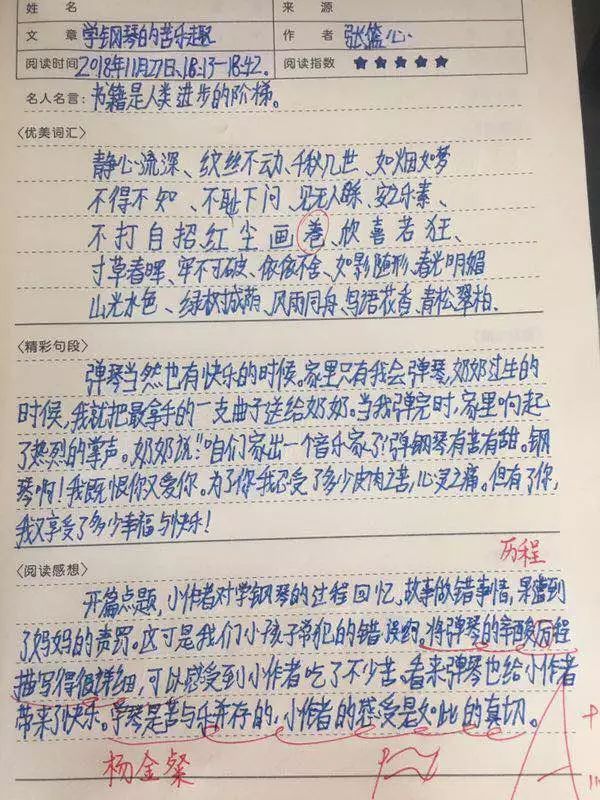 姓 名 来 源
文 章 学钢琴的苦乐趣 作 者
阅读时间 2018年11月27日、18:13-18:42. 阅读指数 ★★★★★
名人名言:书籍是人类进步的阶梯。
〈优美词汇〉
静心流深、纹丝不动、千秋几世、如烟如梦
不得不知、不耻下问、见无人睬、安之乐素、
不打自招红尘画卷、欣喜若狂、
寸草春晖、牢不可破、依依不舍、如影随形、春光明媚
山光水色、绿树成荫、风雨同舟、鸟语花香、青松翠柏、
〈精彩句段〉
弹琴当然也有快乐的时候。家里只有我会弹琴,奶奶过生的
时候,我就把最拿手的一支曲子送给奶奶。当我弹完时,家里响起
了热烈的掌声。奶奶说:"咱们家出一个音乐家了!弹钢琴有苦有甜。钢
琴啊!我既恨你又爱你。为了你我忍受了多少皮肉之苦,心灵之痛。但有了你,
我又享受了多少幸福与快乐!
历程
〈阅读感想〉
开篇点题,小作者对学钢琴的过程回忆、故事做错事情,果遭到
了妈妈的责罚。这可是我们小孩子常犯的错误哟。将弹琴的辛酸历程
描写得很详细,可以感受到小作者吃了不少苦。看来弹琴也给小作者
带来了快乐。学琴是苦与乐并存的,小作者的感受是如此的真切。
杨金燊
A+